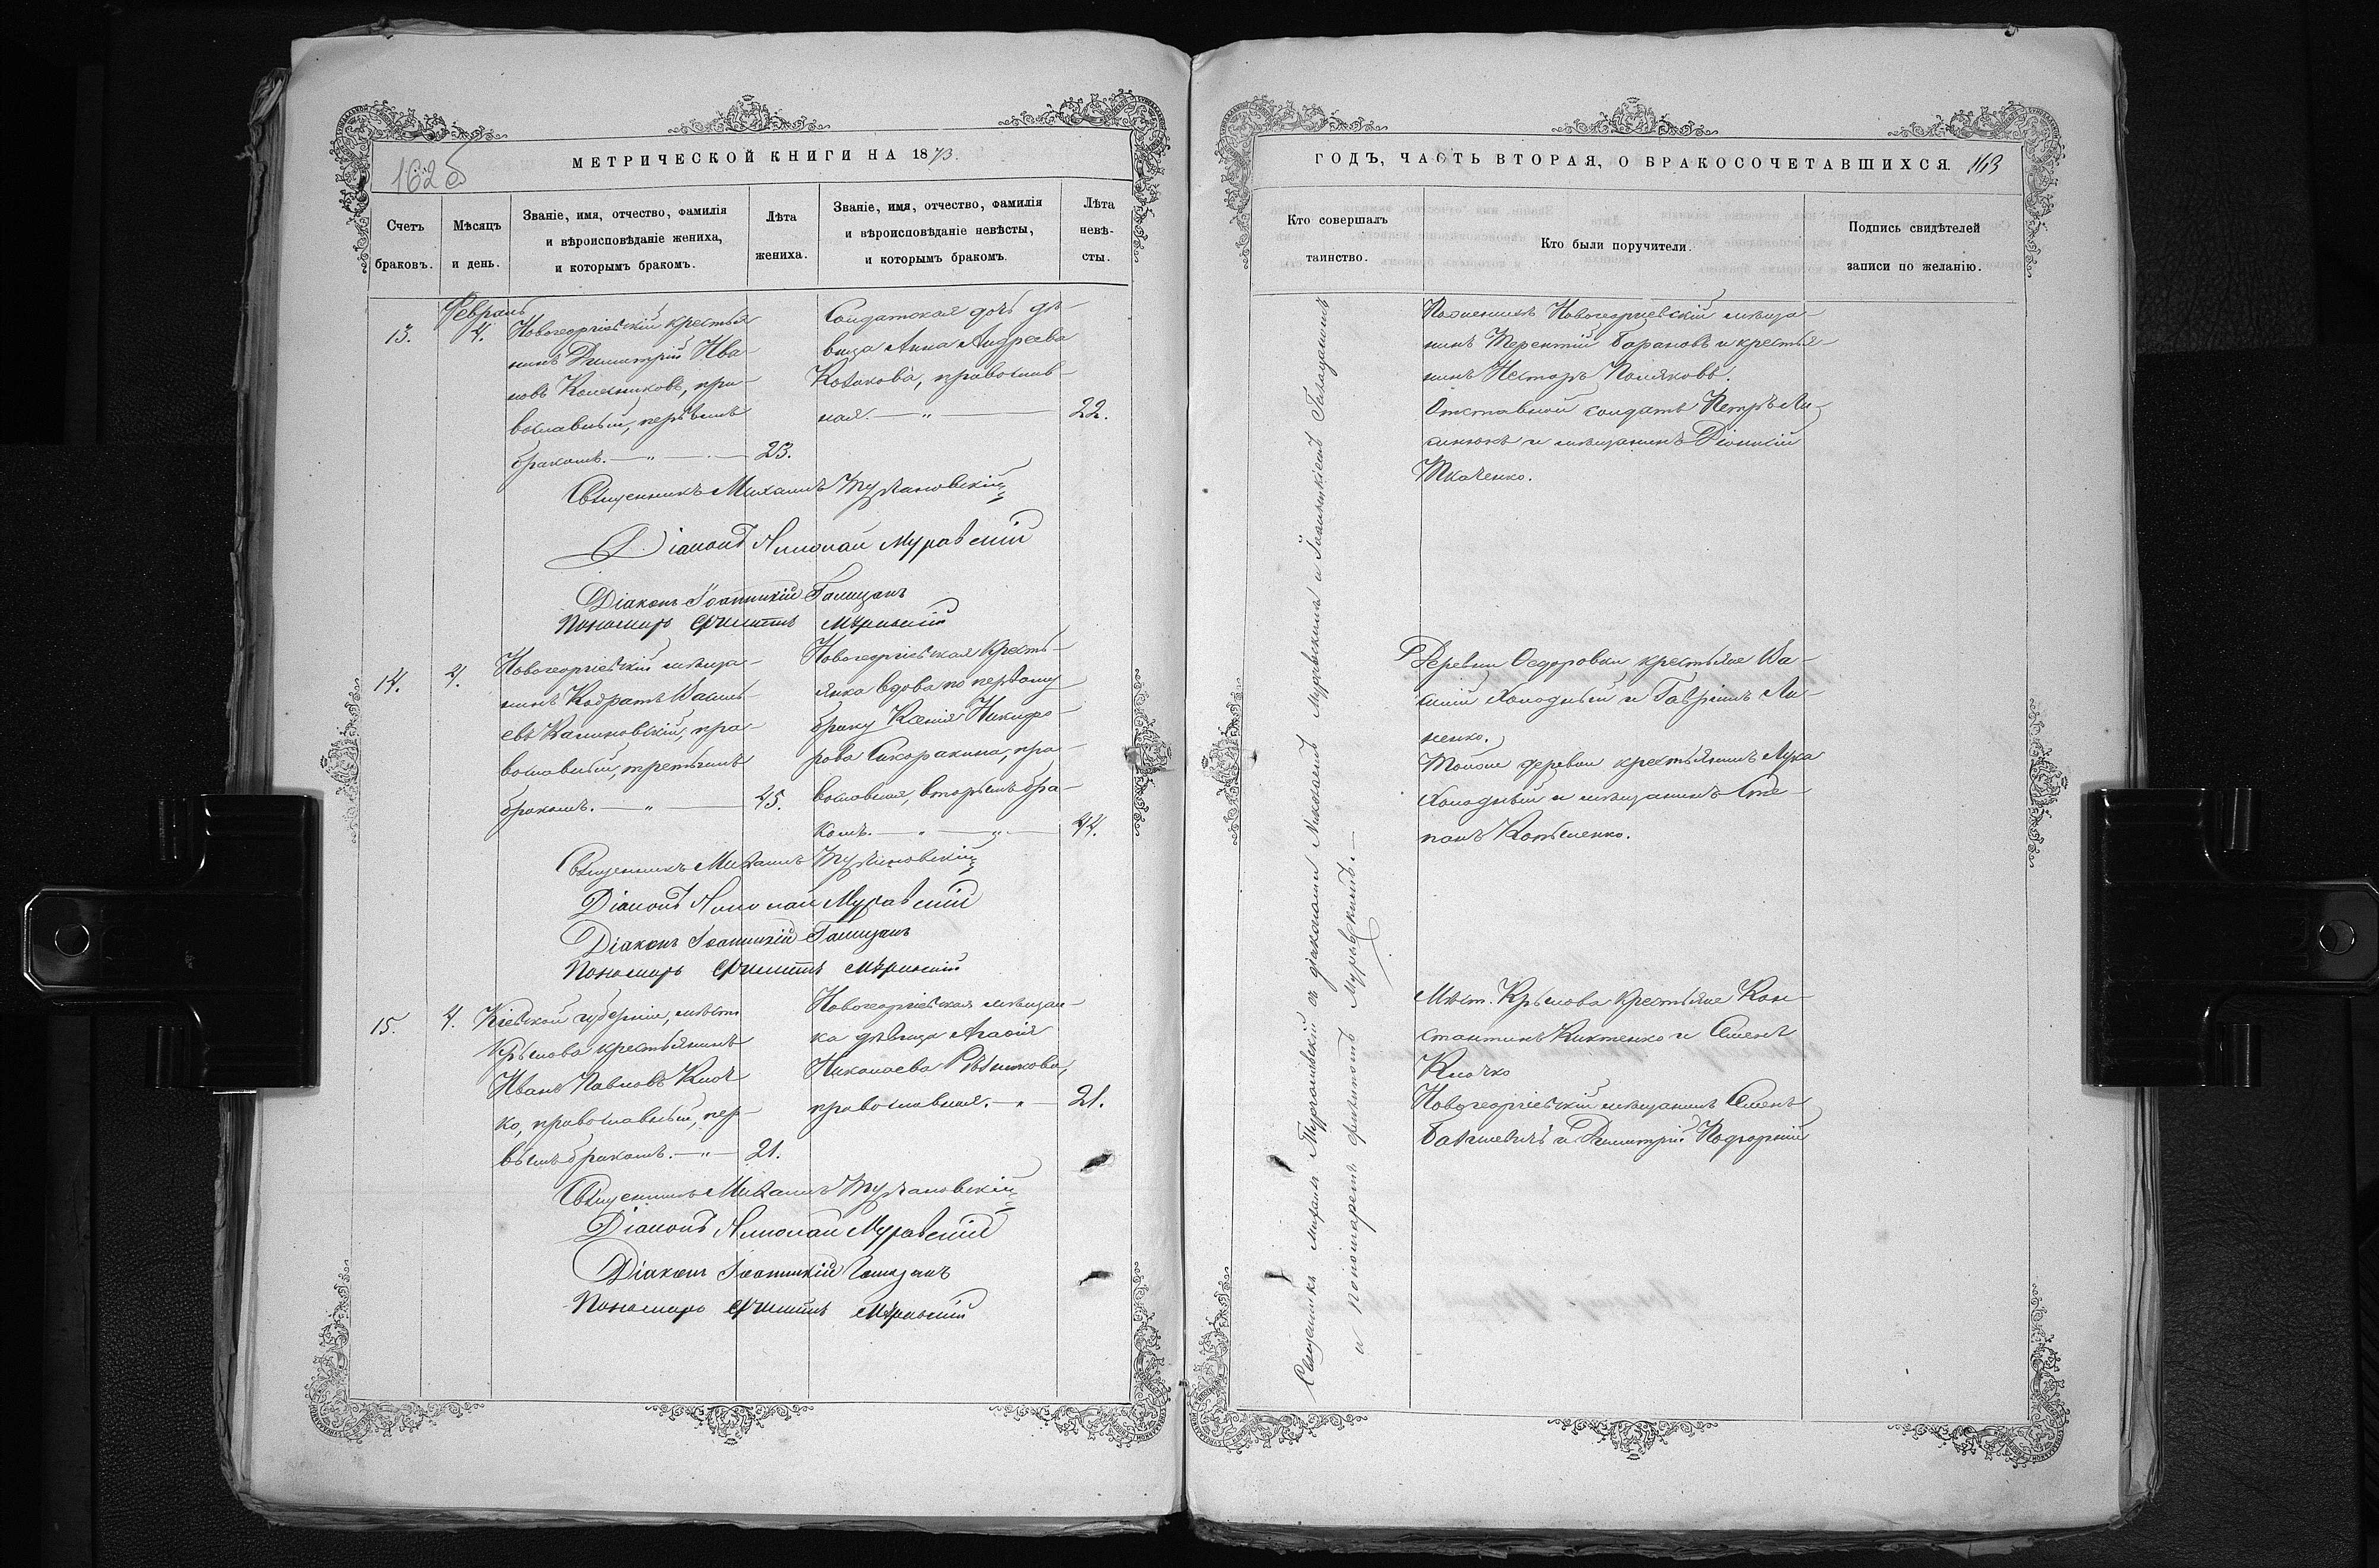 162 об
МЕТРИЧЕСКОЙ КНИГИ НА 1873.
Счетъ браковъ.
Мѣсяцъ и день.
Званіе, имя, отчество, фамилія
и вѣроисповѣданіе жениха,
и которымъ бракомъ.
Лѣта жениха.
Званіе, имя, отчество, фамилія
и вѣроисповѣданіе невѣсты,
и которымъ бракомъ.
Лѣта невѣ-
сты.
Февраль
13.
4.
Новогеоргіевскій крестья-
нинъ Димитрій Ива-
новъ Колесниковъ, пра-
вославный, первымъ
бракомъ. — „ — 23.
Солдатская дочь дѣ-
вица Анна Андреева
Козакова, православ-
ная. — „ — 22.
Священникъ Михаилъ
Діаконъ Николай Муравскій
Діаконъ Іоанникій Галицанъ
Пономарь Филиппъ Муравскій
14.
4.
Новогеоргіевскій мѣща-
нинъ Кодратъ Василь-
евъ Калиновскій, пра-
вославный, третьимъ
бракомъ. — „ — 45.
Новогеоргіевская кресть-
янка вдова по первому
браку Ксенія Никифо-
рова Сикоракина, пра-
вославная, вторымъ бра-
комъ. — „ — „ — 44.
Священникъ Михаилъ
Діаконъ Николай Муравскій
Діаконъ Іоанникій Галицанъ
Пономарь Филиппъ Муравскій
15.
4.
Кіевской губерніи, мѣст.
Крылова крестьянинъ
Иванъ Павловъ Клоч-
ко, православный, пер-
вымъ бракомъ. — „ — 21.
Новогеоргіевская мѣщан-
ка дѣвица Агафія
Николаева Рѣзникова,
православная. — „ — 21.
Священникъ Михаилъ
Діаконъ Николай Муравскій
Діаконъ Іоанникій Галицанъ
Пономарь Филиппъ Муравскій
ГОДЪ, ЧАСТЬ ВТОРАЯ, О БРАКОСОЧЕТАВШИХСЯ. 163
Кто совершалъ
таинство.
Кто были поручители.
Подпись свидѣтелей
записи по желанію.
Священникъ Михаилъ съ діаконами Николаемъ Муравскимъ и Іоанникіемъ Галицаномъ
и пономаремъ Филиппомъ Муравскимъ. —
Новогеоргіевскій мѣща-
нинъ Терентій Барановъ и крестья-
нинъ Несторъ Поляковъ.
Отставной солдатъ Петръ
и мѣщанинъ Діонисій
Ткаченко.
Деревни Федоровки крестьяне Ва-
силій Холодный и Гавріилъ Ли-
ненко.
Тойже деревни крестьянинъ Лука
Холодный и мѣщанинъ Сте-
панъ Кобыленко.
Мѣст. Крылова крестьяне Кон-
стантинъ Киктенко и Семенъ
Клочко
Новогеоргіевскій мѣщанинъ Семенъ
и Димитрій Подгорній